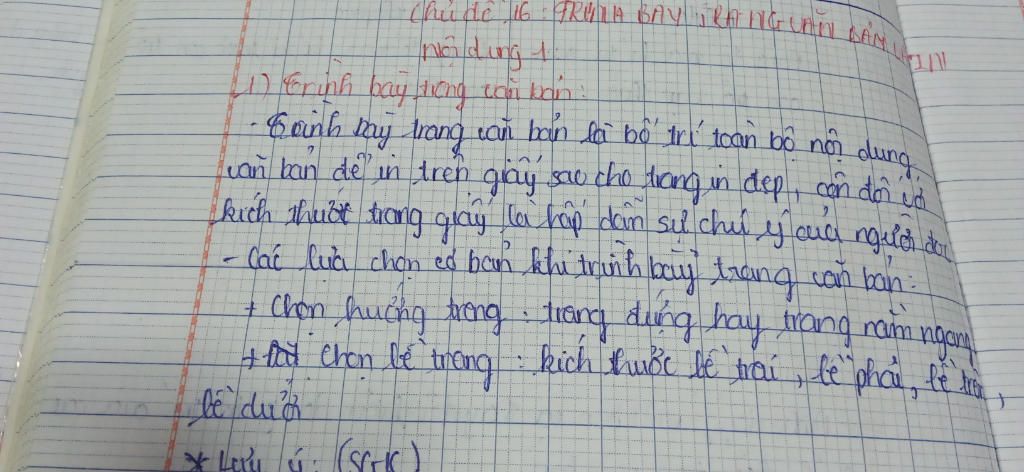 Chủ đề 16: TRÌNH BÀY TRANG VĂN BẢN VÀ IN
nội dung 1
1) trình bày trang văn bản:
- trình bày trang văn bản là bố trí toàn bộ nội dung
văn bản để in trên giấy sao cho trang in đẹp, cân đối và
kích thước trang giấy, là hấp dẫn sự chú ý của người đọc
- Các lựa chọn cơ bản khi trình bày trang văn bản:
+ Chọn hướng trang: trang đứng hay trang nằm ngang
+ chọn lề trang: kích thước lề trái, lề phải, lề trên,
lề dưới
* Lưu ý: (SGK)